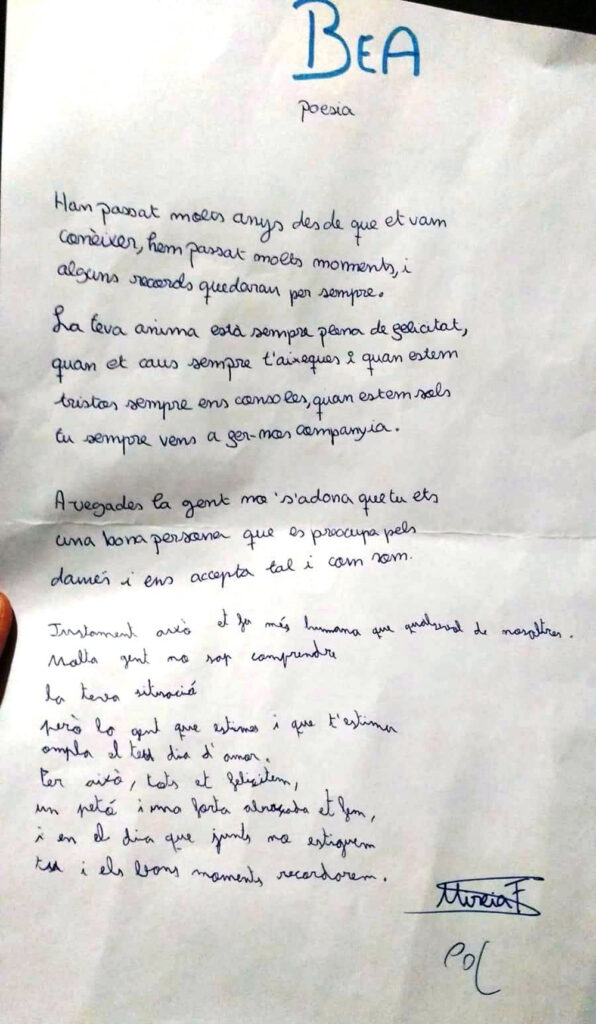 BEA
poesia
Han passat molts anys desde que et vam
conèixer, hem passat molts moments, i
alguns records quedaran per sempre.
La teva anima està sempre plena de felicitat,
quan et caus sempre t'aixeques i quan estem
tristos sempre ens consoles, quan estem sols
tu sempre vens a fer-nos companyia.
A vegades la gent no s'adona que tu ets
una bona persona que es preocupa pels
damés i ens accepta tal i com som.
Justament això et fa més humana que qualsevol de nosaltres.
Molta gent no sap comprendre
la teva situació
però la gent que estimes i que t'estima
ompla el teu dia d'amor.
Per això, tots et felicitem,
un petó i una forta abraçada et fem,
i en el dia que junts no estiguem
tu i els bons moments recordarem.
Mireia F
Pol